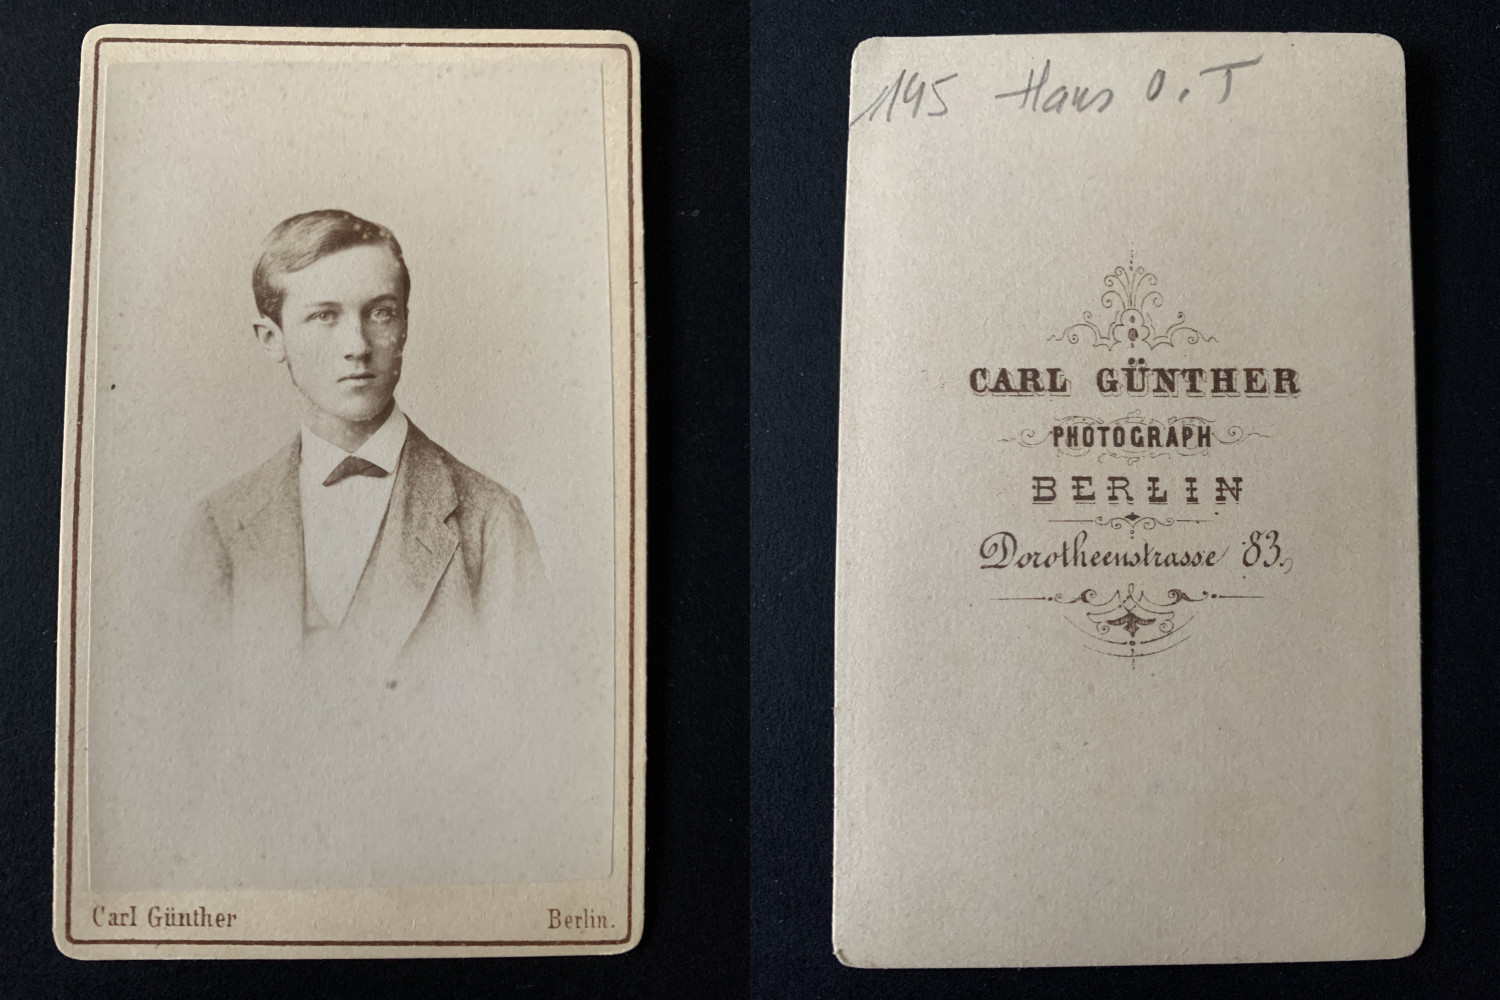 Carl Günther
Berlin.
195 Hans O. T
CARL GÜNTHER
PHOTOGRAPH
BERLIN
Dorotheenstrasse 83.